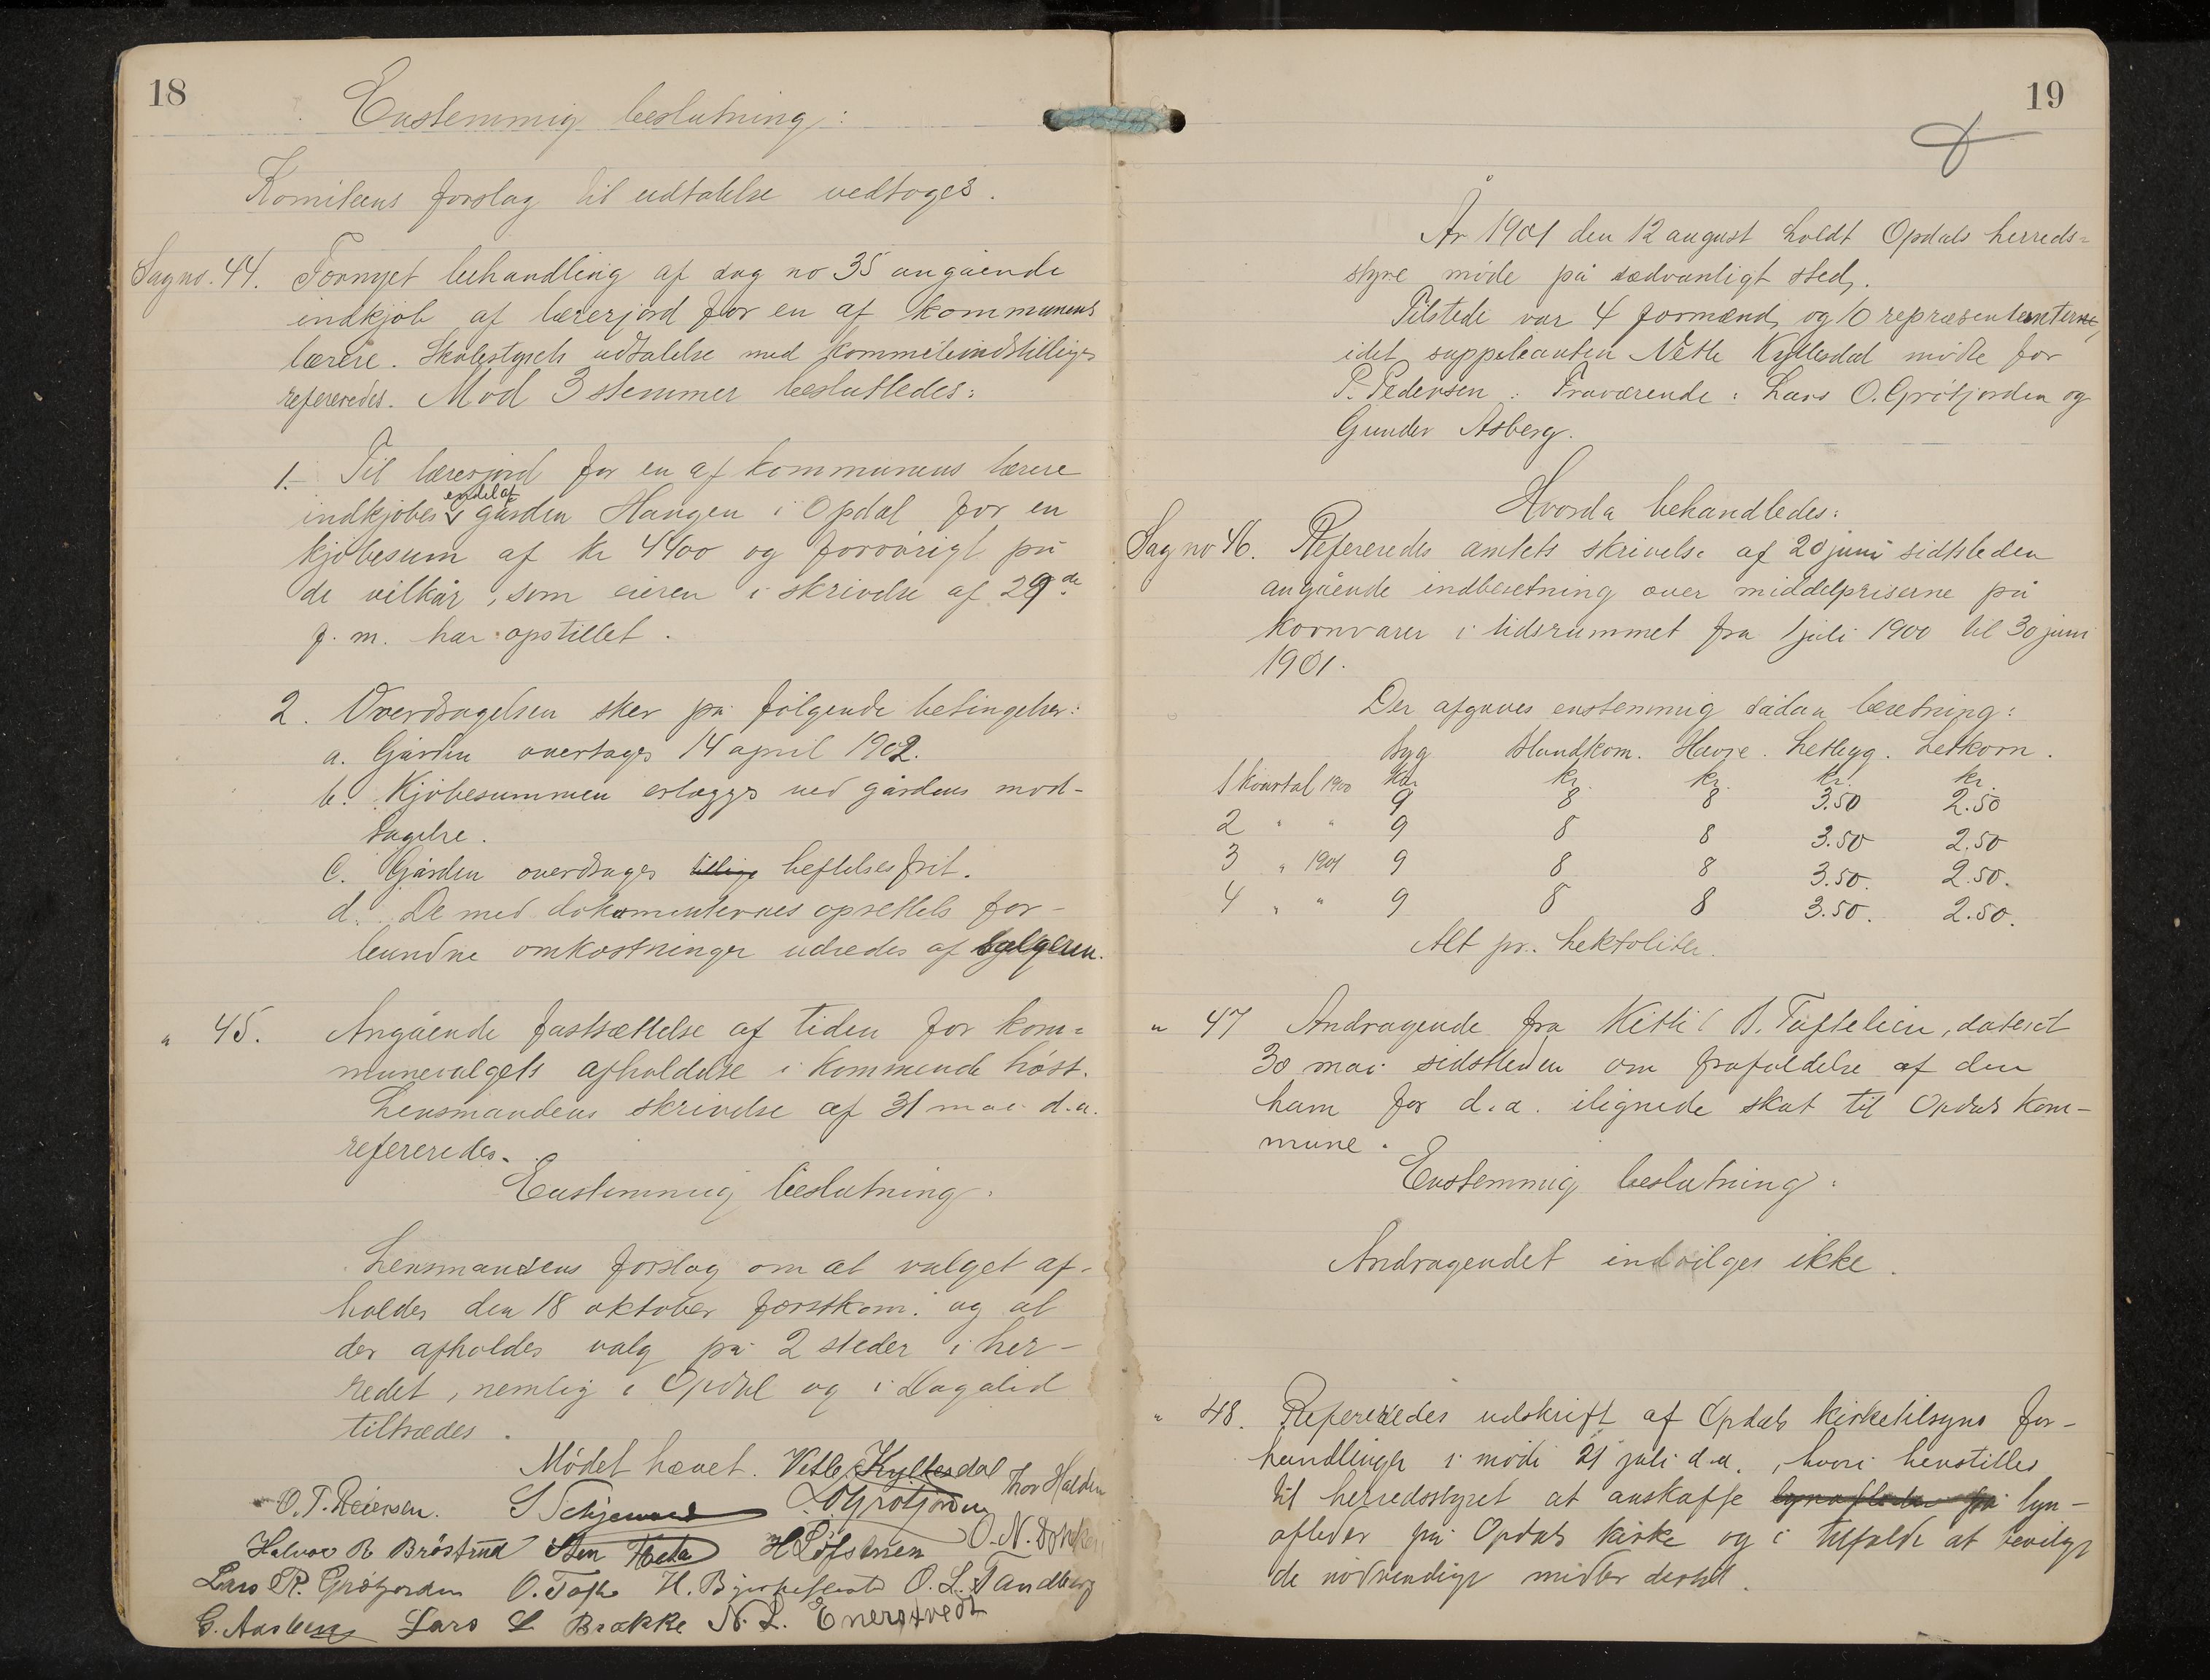 18
Enstemmig beslutning:
Komiteens forslag til udtalelse vedtoges.
Sag no. 44. Fornyet behandling af sag no 35 angående
indkjøb af lærerjord for en af kommunens
lærere. Skolestyrets udtalelse med kommiteindstillinger
refereredes. Mod 3 stemmer besluttedes:
1. Til lærerjord for en af kommunens lærere
indkjøbes endel af gården Haugen i Opdal for en
kjøbesum af kr 4400 og forøvrigt på
de vilkår, som eieren i skrivelse af 29de
f. m. har opstillet.
2. Overdragelsen sker på følgende betingelser:
a. Gården overtages 14 april 1902.
b. Kjøbesummen erlægges ved gårdens mod-
tagelse.
C. Gården overdrages tillige heftelsesfrit.
d. De med dokumenternes oprettels for-
bundne omkostninger udredes af sælgeren.
" 45. Angående fastsættelse af tiden for kom=
munevalgets afholdelse i kommende høst.
Lensmandens skrivelse af 31 mai d.a.
refereredes.
Enstemmig beslutning:
Lensmandens forslag om at valget af-
holdes den 18 oktober førstkom. og at
der afholdes valg på 2 steder i her-
redet, nemlig i Opdal og i Dagalid
tiltrædes.
Mødet hævet. Vetle Kyllesdal Thor Halden
O. T. Reiersen. S Schjerven L. O Grøtjorden
Halvor R Brøstrud Sten Heta H Løfsneen O. N.
Lars R. Grøtjorden O. Toft H. O. L. Tandberg
G. Aasberg Lars L Brække N. L. Enerstvedt
19
År 1901 den 12 august holdt Opdals herreds=
styre møde på sædvanligt sted.
Tilstede var 4 formænd og 10 repræsentanterne,
idet suppleanten Vetle Kyllesdal mødte for
P. Pedersen. Fraværende: Lars O. Grøtjorden og
Gunder Asberg.
Hvorda behandledes:
Sag no 46. Refereredes amtets skrivelse af 20 juni sidstleden
angående indberetning over middelpriserne på
kornvarer i tidsrummet fra 1 juli 1900 til 30 juni
1901.
Der afgaves enstemmig sådan beretning:
Byg Blandkorn. Havre. Letbyg. Letkorn.
1 kvartal 1900 kr. 9 kr. 8 kr. 8 kr. 3.50 kr. 2.50
2 " " 9 8 8 3.50 2.50
3 " 1901 9 8 8 3.50. 2.50.
4 " " 9 8 8 3.50. 2.50.
Alt pr. hektoliter.
" 47 Andragende fra Kittil B. Tuftelien, dateret
30 mai sidstleden om frafaldelse af den
ham for d.a. ilignede skat til Opdals kom-
mune.
Enstemmig beslutning:
Andragendet indvilges ikke.
" 48. Refereredes udskrift af Opdals kirketilsyns for-
handlinger i møde 21 juli d.a., hvori henstilles
til herredsstyret at anskaffe lynafleder på lyn-
afleder på Opdals kirke og i tilfælde at bevilge
de nødvendige midler dertil.